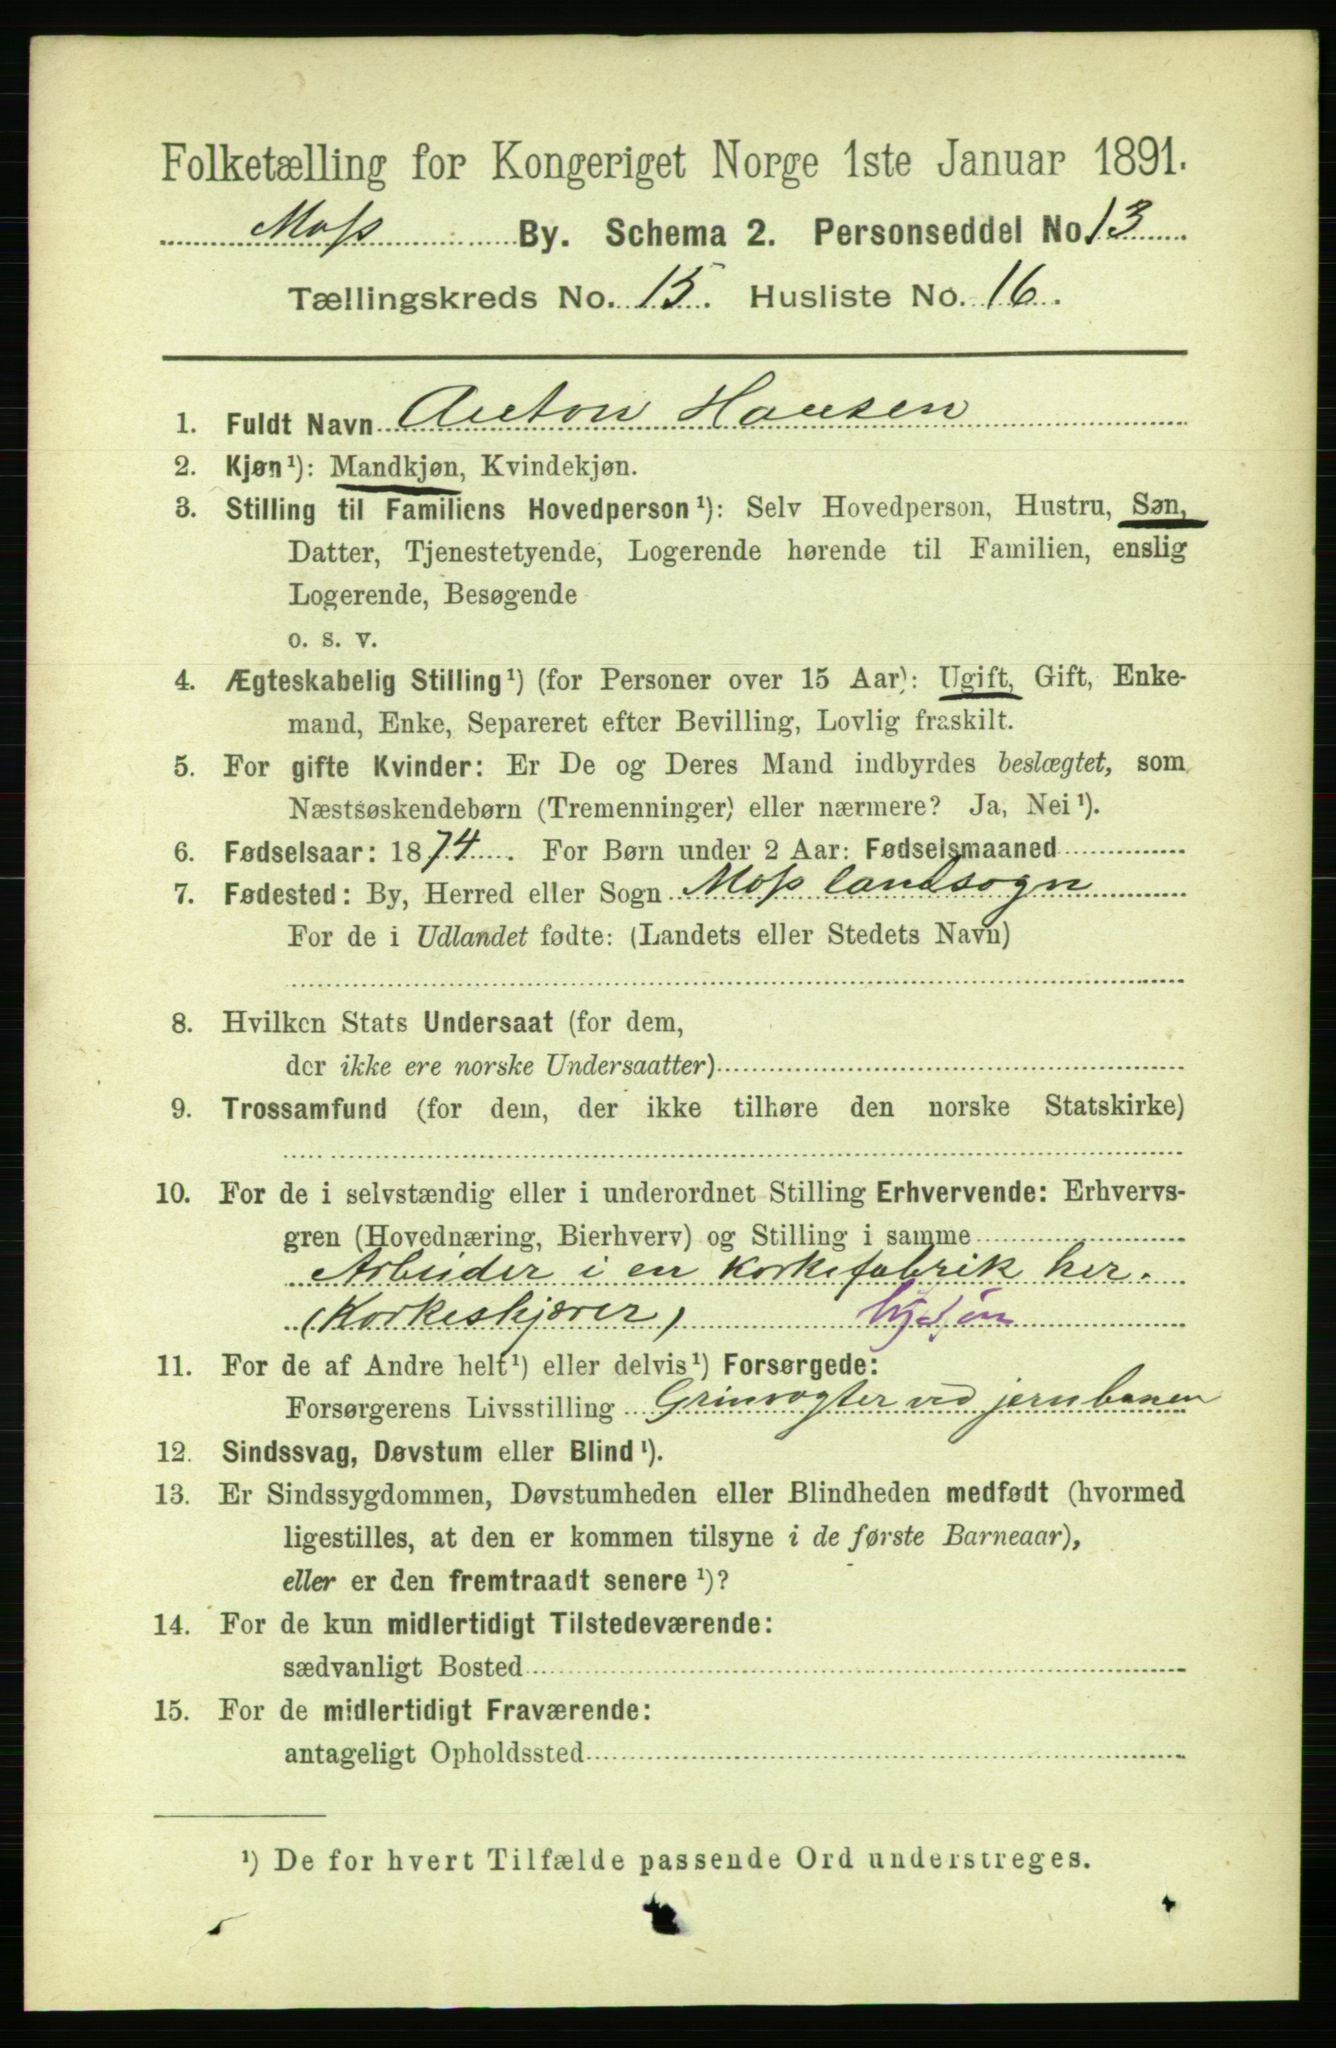 Folketælling for Kongeriget Norge 1ste Januar 1891.
Moss By. Schema 2. Personseddel No. 13
Tællingskreds No. 15. Husliste No. 16.
1. Fuldt Navn Anton Hansen
2. Kjøn¹): Mandkjøn, Kvindekjøn.
3. Stilling til Familiens Hovedperson¹): Selv Hovedperson, Hustru, Søn,
Datter, Tjenestetyende, Logerende hørende til Familien, enslig
Logerende, Besøgende
o. s. v.
4. Ægteskabelig Stilling¹) (for Personer over 15 Aar): Ugift, Gift, Enke-
mand, Enke, Separeret efter Bevilling, Lovlig fraskilt.
5. For gifte Kvinder: Er De og Deres Mand indbyrdes beslægtet, som
Næstsøskendebørn (Tremenninger) eller nærmere? Ja, Nei¹).
6. Fødselsaar: 1874. For Børn under 2 Aar: Fødselsmaaned
7. Fødested: By, Herred eller Sogn Moss landsogn
For de i Udlandet fødte: (Landets eller Stedets Navn)
8. Hvilken Stats Undersaat (for dem,
der ikke ere norske Undersaatter)
9. Trossamfund (for dem, der ikke tilhøre den norske Statskirke)
10. For de i selvstændig eller i underordnet Stilling Erhvervende: Erhvervs-
gren (Hovednæring, Bierhverv) og Stilling i samme
Arbeider i en Korkefabrik her.
(Korkeskjærer)
11. For de af Andre helt¹) eller delvis¹) Forsørgede:
Forsørgerens Livsstilling Grinvogter ved jernbanen
12. Sindssvag, Døvstum eller Blind¹).
13. Er Sindssygdommen, Døvstumheden eller Blindheden medfødt (hvormed
ligestilles, at den er kommen tilsyne i de første Barneaar),
eller er den fremtraadt senere¹)?
14. For de kun midlertidigt Tilstedeværende:
sædvanligt Bosted
15. For de midlertidigt Fraværende:
antageligt Opholdssted
¹) De for hvert Tilfælde passende Ord understreges.